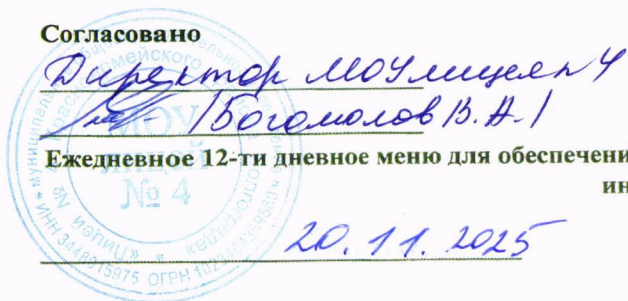 Согласовано
Директор МОУ лицея № 4
/Богомолов В.А./
Ежедневное 12-ти дневное меню для обеспечени
ин
20.11.2025
МОУ
ЛИЦЕЙ
№ 4
ИНН 3448015975 ОГРН